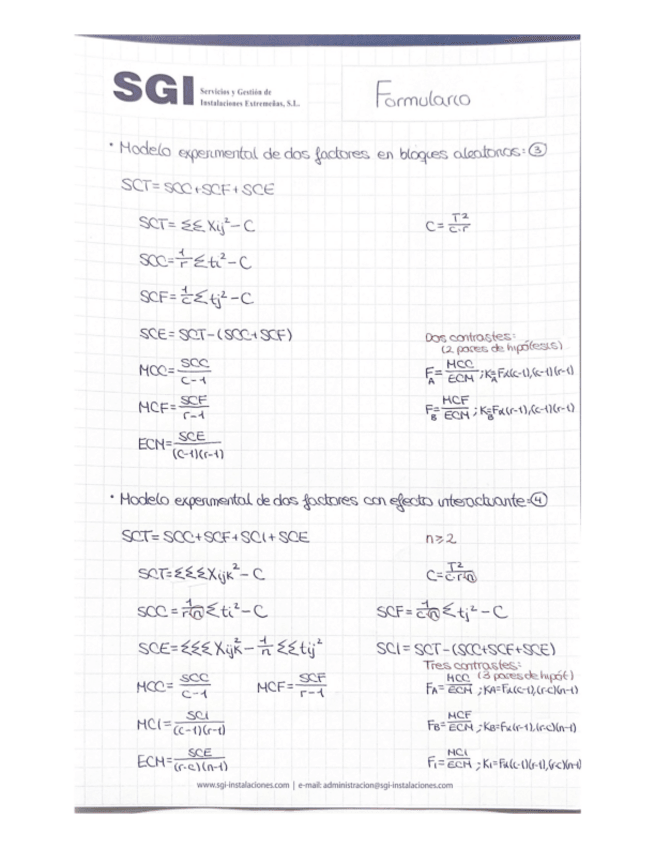 SGI Servicios y Gestión de
Instalaciones Extremeñas, S.L.
Formulario
• Modelo experimental de dos factores en bloques aleatorios: ③
SCT = SCC + SCF + SCE
SCT = ΣΣ Xij² - C    C = T²/c·r
SCC = 1/r Σ ti² - C
SCF = 1/c Σ tj² - C
SCE = SCT - (SCC + SCF)
Dos contrastes:
(2 pares de hipótesis)
MCC = SCC/c-1    F_A = MCC/ECM ; K_A = Fα(c-1),(c-1)(r-1)
MCF = SCF/r-1    F_B = MCF/ECM ; K_B = Fα(r-1),(c-1)(r-1)
ECM = SCE/(c-1)(r-1)
• Modelo experimental de dos factores con efecto interactuante: ④
SCT = SCC + SCF + SCI + SCE    n ≥ 2
SCT = ΣΣΣ Xijk² - C    C = T²/c·r·n
SCC = 1/r·n Σ ti² - C    SCF = 1/c·n Σ tj² - C
SCE = ΣΣΣ Xijk² - 1/n ΣΣ tij²    SCI = SCT - (SCC + SCF + SCE)
Tres contrastes:
(3 pares de hipót)
MCC = SCC/c-1    MCF = SCF/r-1    FA = MCC/ECM ; KA = Fα(c-1),(r·c)(n-1)
MCI = SCI/(c-1)(r-1)    FB = MCF/ECM ; KB = Fα(r-1),(r·c)(n-1)
ECM = SCE/(r·c)(n-1)    FI = MCI/ECM ; KI = Fα(c-1)(r-1),(r·c)(n-1)
www.sgi-instalaciones.com | e-mail: administracion@sgi-instalaciones.com